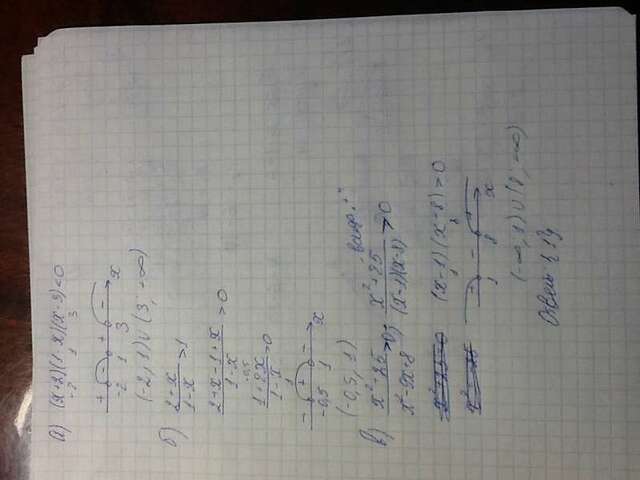 а) (x+2)(1-x)(x-3)<0
-2 1 3
+ - + -
-2 1 3 x
(-2, 1) ∪ (3, -∞)
б) 2+x/1-x > 1
2+x-1+x/1-x > 0
-0,5
1+2x/1-x > 0
1
- + -
-0,5 1 x
(-0,5, 1)
в) x²+25/x²-9x+8 > 0; x²+25/(x-1)(x-8) > 0
(x-1)(x-8) > 0
1 8
-
1 8 x
(-∞, 1) ∪ (8, -∞)